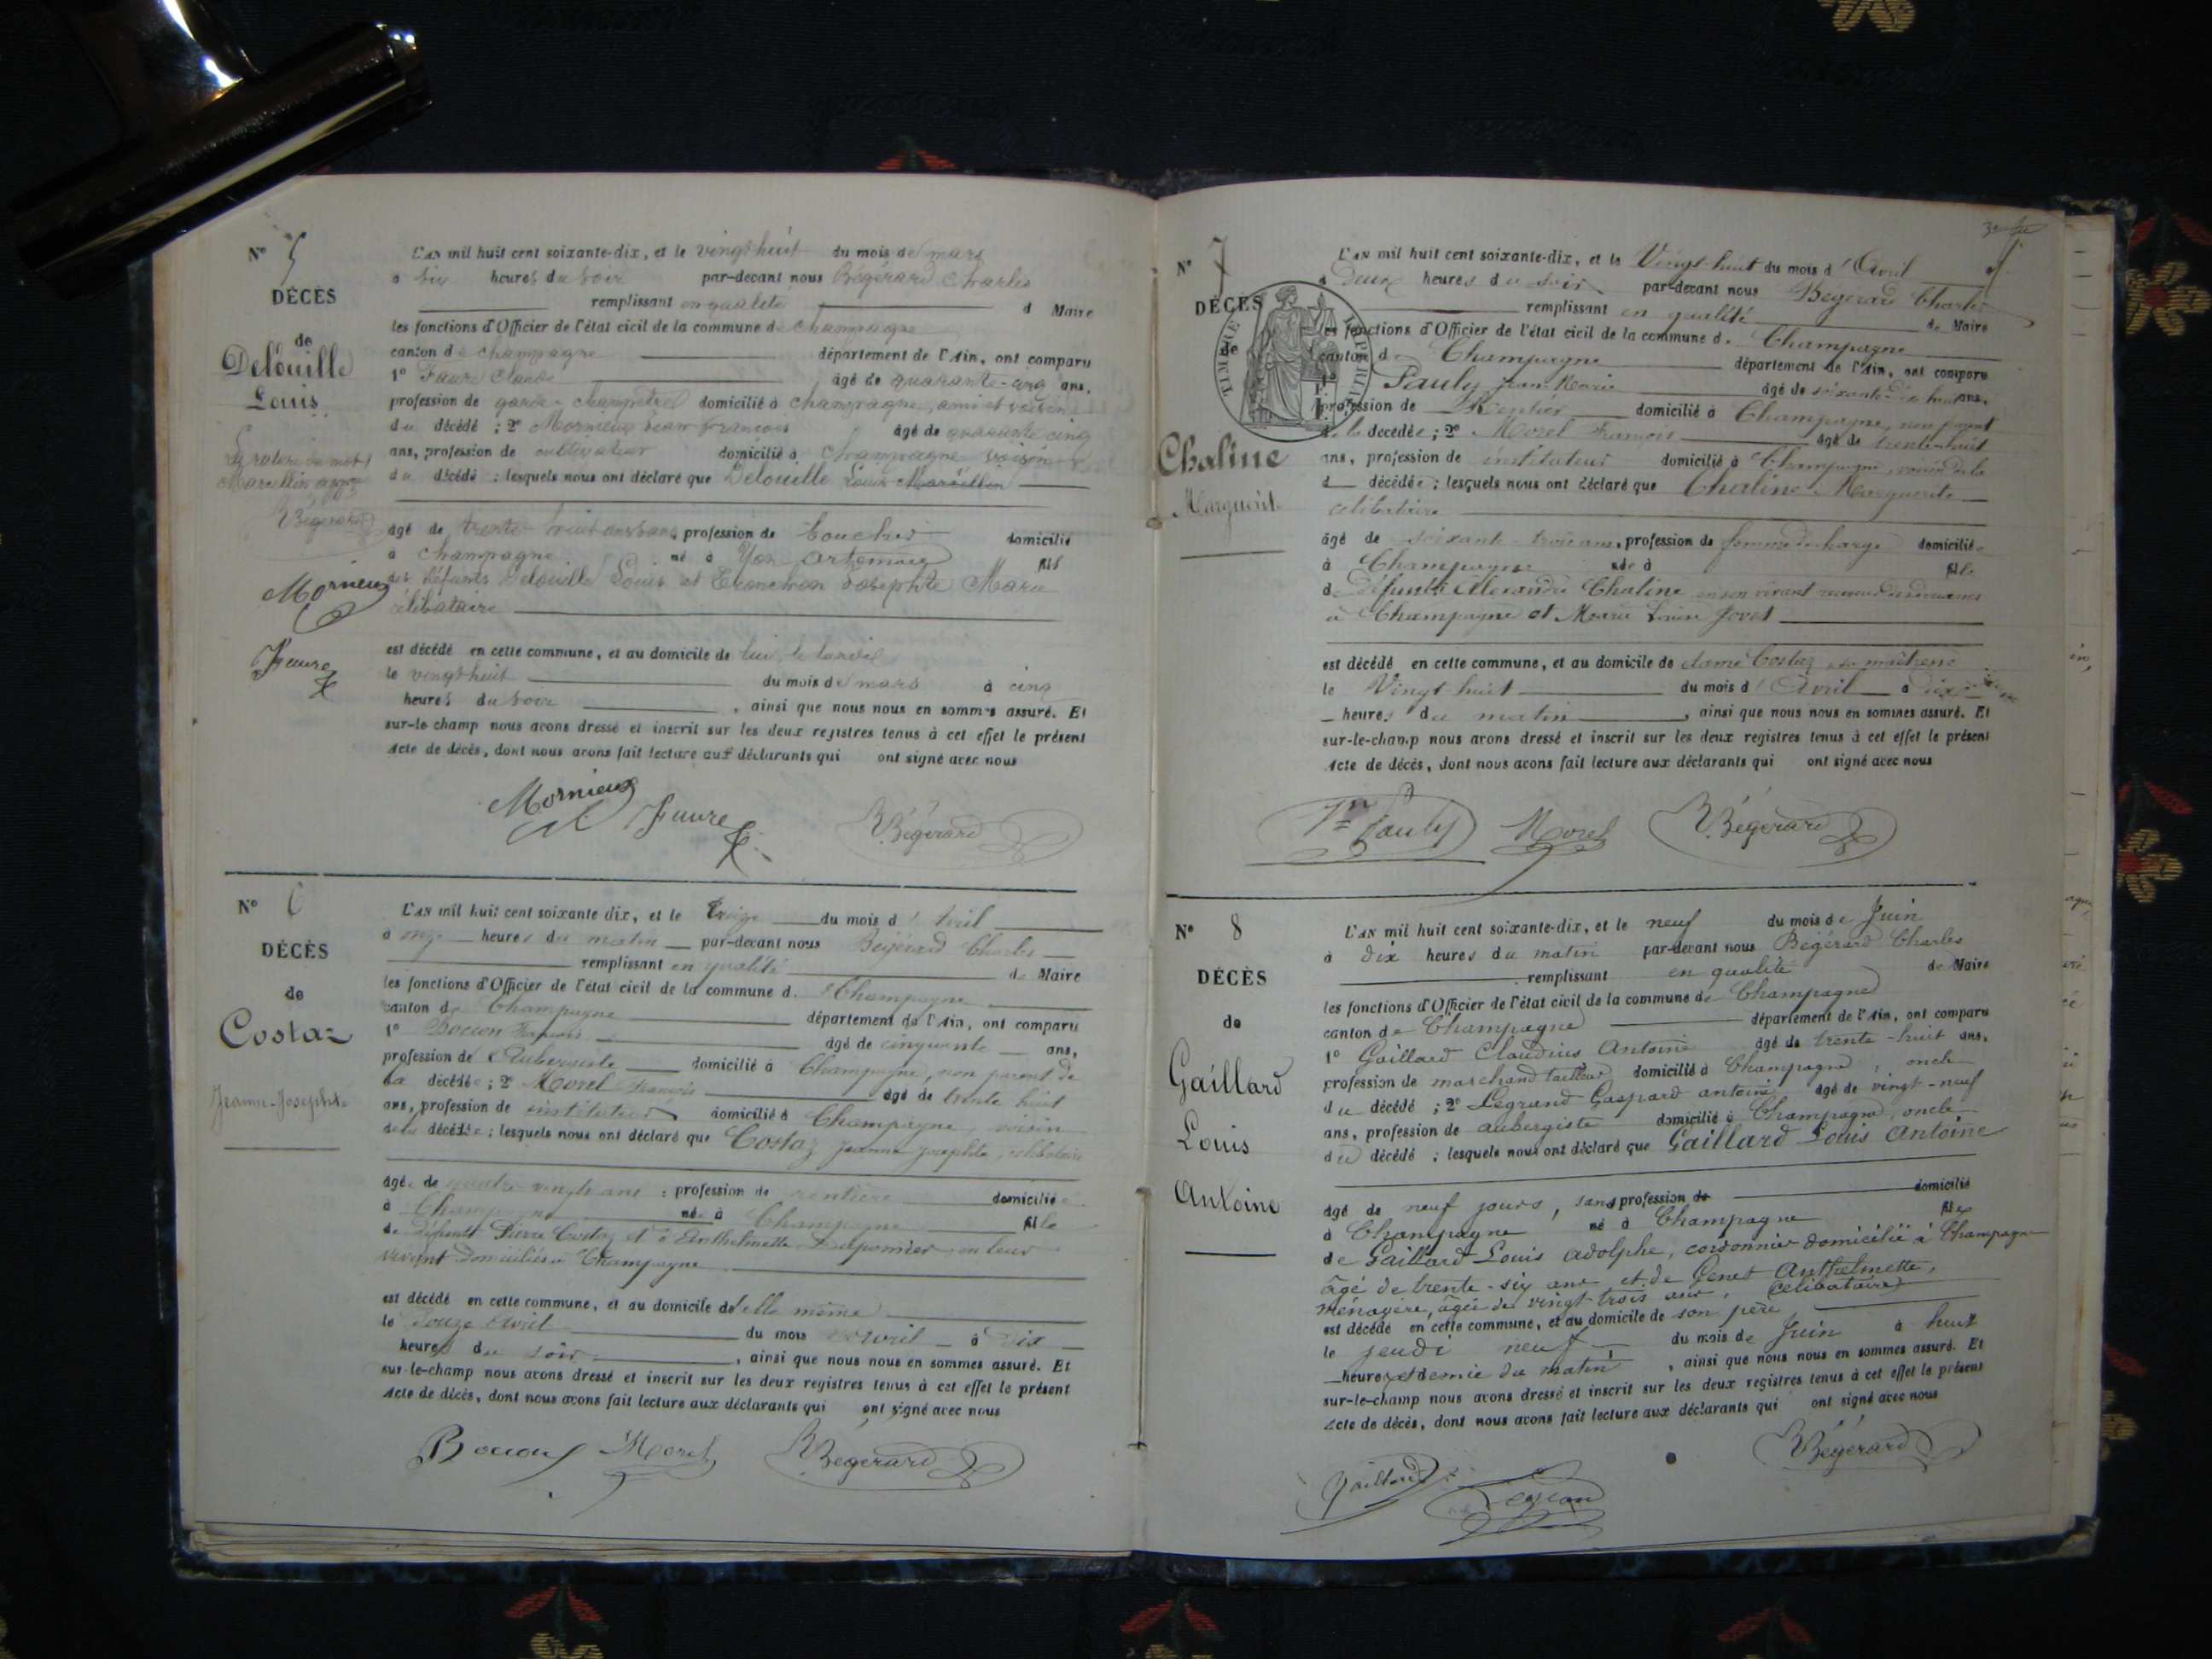 N° 5
DÉCÈS
de
Delouille
Louis
La rature du mot
Marcellin approuvé
Bégerard
Mornieux
Faure
L'AN mil huit cent soixante-dix, et le vingt huit du mois de mars
à six heures du soir par-devant nous Bégérard Charles
remplissant en qualité d Maire
les fonctions d'Officier de l'état civil de la commune de champagne
canton de champagne département de l'Ain, ont comparu
1° Faure Claude âgé de quarante-cinq ans,
profession de garde-champêtre domicilié à champagne, ami et voisin
du décédé ; 2° Mornieux Jean françois âgé de quarante cinq
ans, profession de cultivateur domicilié à champagne voisin
du décédé : lesquels nous ont déclaré que Delouille Louis Marcellin
âgé de trente huit ans, profession de boucher domicilié
à champagne né à Yon artemare fils
des défunts Delouille Louis et Josephte Marie
célibataire
est décédé en cette commune, et au domicile de lui
le vingt huit du mois de mars à cinq
heures du soir , ainsi que nous nous en sommes assuré. Et
sur-le champ nous avons dressé et inscrit sur les deux registres tenus à cet effet le présent
Acte de décès, dont nous avons fait lecture aux déclarants qui ont signé avec nous
Mornieux Faure Bégerard
N° 6
DÉCÈS
de
Costaz
Jeanne-Josephte
L'AN mil huit cent soixante dix, et le treize du mois d'Avril
à onze heures du matin par-devant nous Bégérard Charles
remplissant en qualité de Maire
les fonctions d'Officier de l'état civil de la commune d. Champagne
canton de Champagne département de l'Ain, ont comparu
1° Bocion François âgé de cinquante ans,
profession de Aubergiste domicilié à Champagne, non parent de
la décédée ; 2° Morel François âgé de trente huit
ans, profession de instituteur domicilié à Champagne, voisin
de la décédée ; lesquels nous ont déclaré que Costaz Jeanne Josephte, célibataire
âgée de quatre-vingts ans : profession de rentière domiciliée
à Champagne née à Champagne fille
de défunts Pierre Costaz et d'Anthelmette Duponnier en leur
vivant domiciliés à Champagne
est décédé en cette commune, et au domicile de elle même
le douze Avril du mois d'avril à dix
heures du soir , ainsi que nous nous en sommes assuré. Et
sur-le-champ nous avons dressé et inscrit sur les deux registres tenus à cet effet le présent
Acte de décès, dont nous avons fait lecture aux déclarants qui ont signé avec nous
Morel Bégerard
N° 7
DÉCÈS
de
TIMBRE IMPERIAL
Chaline
Marguerite
L'AN mil huit cent soixante-dix, et le Vingt-huit du mois d'Avril
à Deux heures du soir par-devant nous Bégérard Charles
remplissant en qualité de Maire
les fonctions d'Officier de l'état civil de la commune de Champagne
canton de Champagne département de l'Ain, ont comparu
1° Pauly Jean-Marie âgé de soixante-dix huit ans,
profession de Rentier domicilié à Champagne, non parent
de la décédée ; 2° Morel François âgé de trente-huit
ans, profession de instituteur domicilié à Champagne, voisin de la
d décédée ; lesquels nous ont déclaré que Chaline Marguerite
célibataire
âgé de soixante-trois ans, profession de femme de charge domiciliée
à Champagne née à fille
de défunts Alexandre Chaline en son vivant receveur des domaines
à Champagne et Marie Louise Jovet
est décédé en cette commune, et au domicile de dame Costaz sa maîtresse
le Vingt-huit du mois d'Avril à dix
heures du matin , ainsi que nous nous en sommes assuré. Et
sur-le-champ nous avons dressé et inscrit sur les deux registres tenus à cet effet le présent
Acte de décès, dont nous avons fait lecture aux déclarants qui ont signé avec nous
Pauly Morel Bégerard
N° 8
DÉCÈS
de
Gaillard
Louis
Antoine
L'AN mil huit cent soixante-dix, et le neuf du mois de Juin
à dix heures du matin par-devant nous Bégérard Charles
remplissant en qualité de Maire
les fonctions d'Officier de l'état civil de la commune de Champagne
canton de Champagne département de l'Ain, ont comparu
1° Gaillard Claudius Antoine âgé de trente-huit ans,
profession de marchand tailleur domicilié à Champagne, oncle
du décédé ; 2° Legrand Gaspard antoine âgé de vingt-neuf
ans, profession de aubergiste domicilié à Champagne, oncle
du décédé ; lesquels nous ont déclaré que Gaillard Louis Antoine
âgé de neuf jours, sans profession de domicilié
à Champagne né à Champagne fils
de Gaillard Louis adolphe, cordonnier domicilié à Champagne
âgé de trente-six ans et de Genet Anthelmette,
ménagère, âgée de vingt-trois ans, célibataire
est décédé en cette commune, et au domicile de son père
le jeudi neuf du mois de Juin à huit
heures et demie du matin , ainsi que nous nous en sommes assuré. Et
sur-le-champ nous avons dressé et inscrit sur les deux registres tenus à cet effet le présent
Acte de décès, dont nous avons fait lecture aux déclarants qui ont signé avec nous
Bégerard
Gaillard Legrand